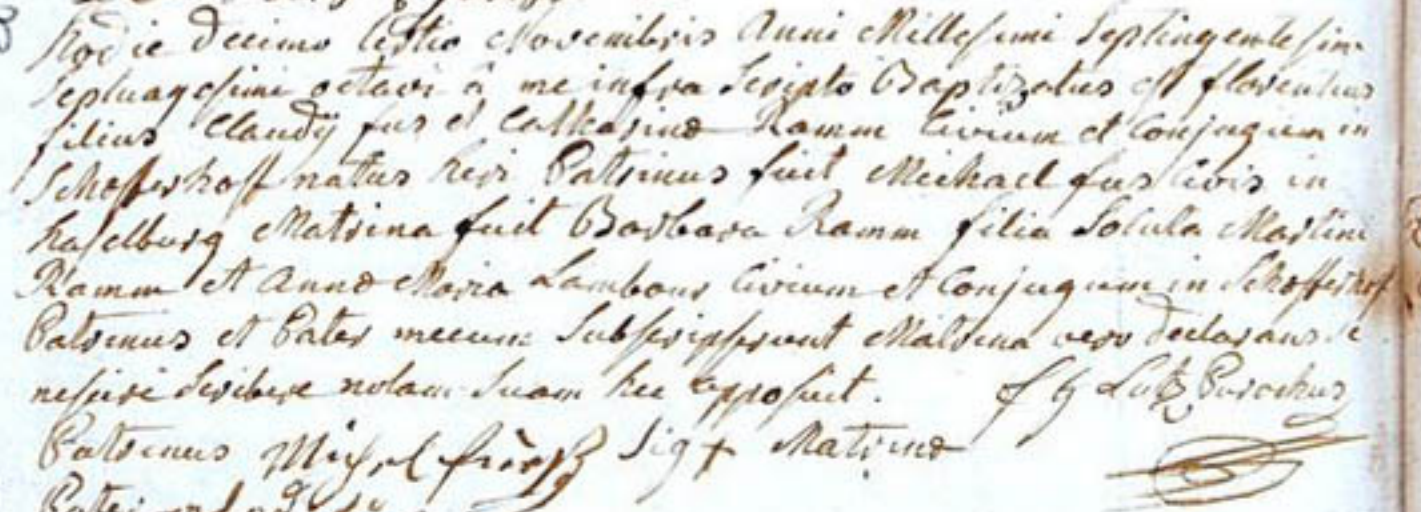 Hodie decimo tertio Novembris Anni Millesimi Septingentesim
Septuagesimi octavi à me infra Scripto Baptizatus est florentius
filius Claudij fus et Catharinæ Ramm Civium et Conjugum in
Schofferhoff natus heri Patrinus fuit Michael fus Civis in
haselburg Matrina fuit Barbara Ramm filia Soluta Martini
Ramm et Annæ Maria Lambour Civium et Conjugum in Schofferhof
Patrinus et Pater mecum Subscripserunt Matrina vero declarans se
nescire Scribere notam Suam hic apposuit. Lutz Parochus
Patrinus Michel Sig + Matrinæ
Pater